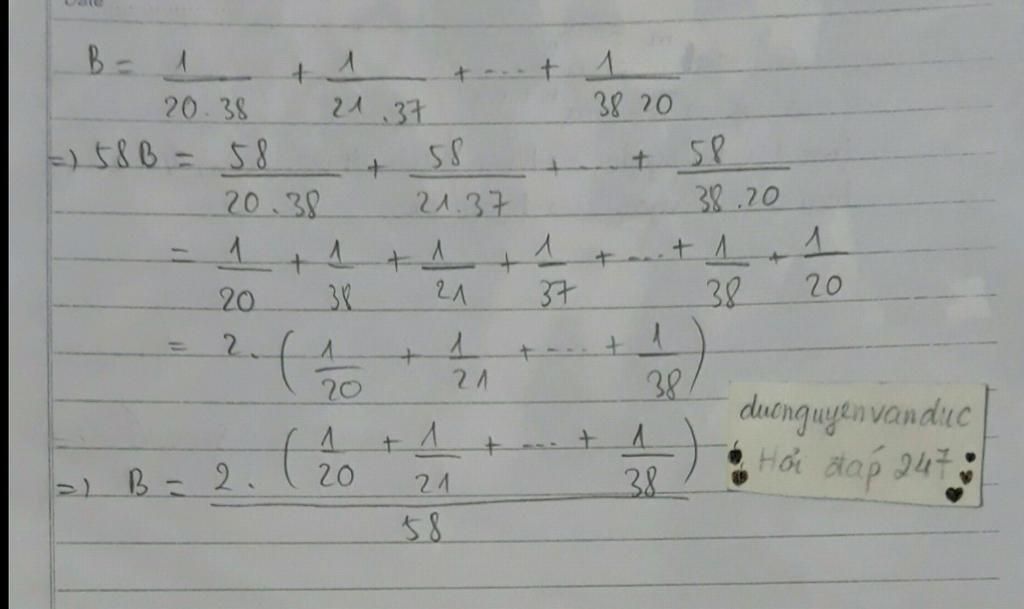 Date
B = 1/20.38 + 1/21.37 + ... + 1/38 20
=) 58B = 58/20.38 + 58/21.37 + ... + 58/38.20
= 1/20 + 1/38 + 1/21 + 1/37 + ... + 1/38 + 1/20
= 2. (1/20 + 1/21 + ... + 1/38)
=) B = 2. (1/20 + 1/21 + ... + 1/38)/58
ducnguyenvanduc
Hỏi đáp 247